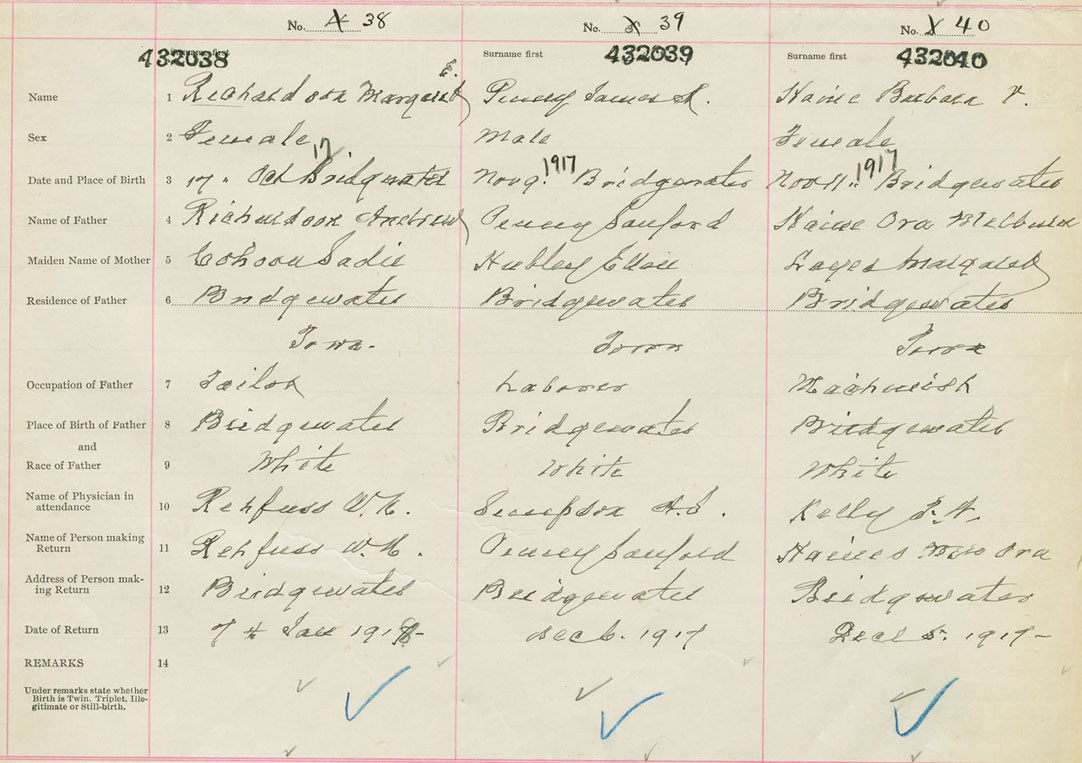 No. 38 No. 39 No. 40
432038 Surname first 432039 Surname first 432040
Surname first
Name 1 Richardson Margaret E. Penney James A. Haine Barbara V.
Sex 2 Female Male Female
Date and Place of Birth 3 17 " Oct 17 Bridgwater Nov 9. 1917 Bridgewater Nov 11 .. 1917 Bridgewater
Name of Father 4 Richardson Andrew Penney Sanford Haine Ora Melburn
Maiden Name of Mother 5 Cohoon Sadie Hubley Ellen Margaret
Residence of Father 6 Bridgewater Bridgewater Bridgewater
Town. Town Town
Occupation of Father 7 Tailor Laborer Machinist
Place of Birth of Father 8 Bridgewater Bridgewater Bridgewater
and
Race of Father 9 White White White
Name of Physician in
attendance 10 Rehfuss W. N. Simpson H. S. Kelly
Name of Person making
Return 11 Rehfuss W. N. Penney Sanford Haines Ora
Address of Person mak-
ing Return 12 Bridgewater Bridgewater Bridgewater
Date of Return 13 7th Jan 1918 Dec 6. 1917 Dec 5. 1917
REMARKS 14
Under remarks state whether
Birth is Twin, Triplet, Ille-
gitimate or Still-birth.